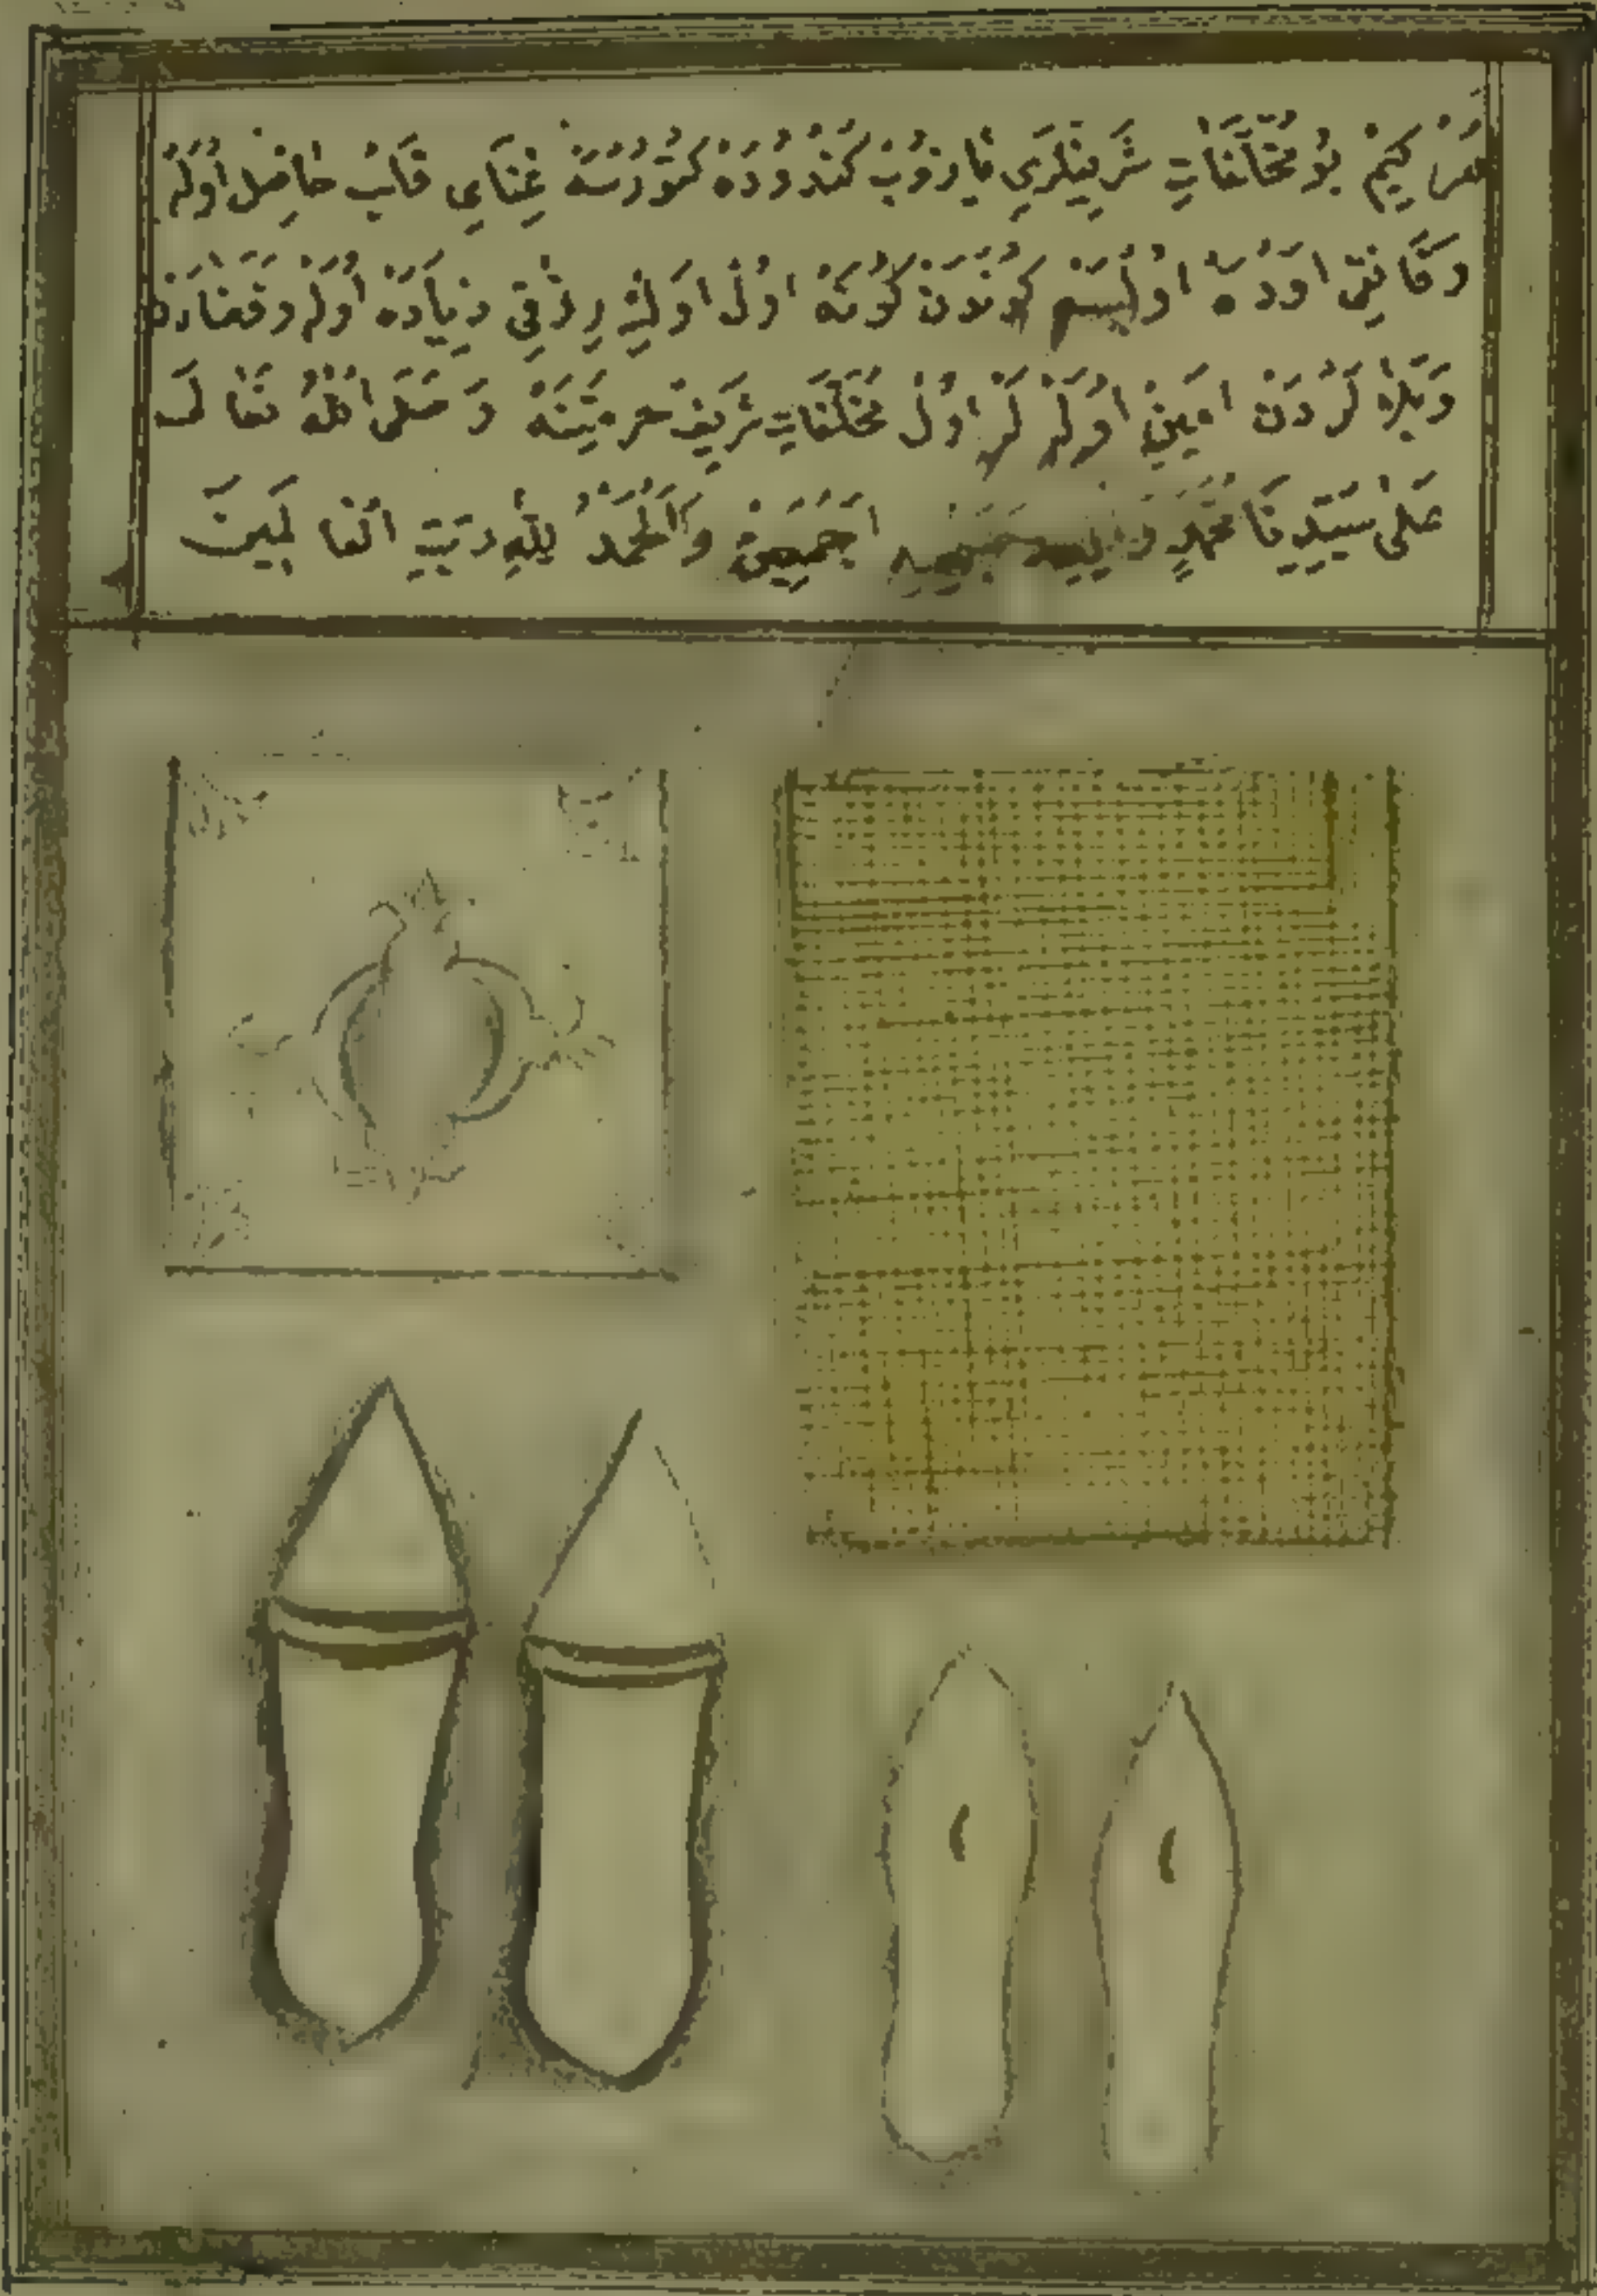 هَرْ كِيمْ بُو مُخَلَّفَاتِ شَرِيفْلَرِي يَازُوبْ كَنْدُودَهْ كُتُورُسَهْ غِنَايِ قَلْبْ حَاصِلْ اُولُرْ
وَقَانْقِي اَوْدَهْ اُولْسَهْ كُونْدَنْ كُونَهْ اُولْ اَوِكْ رِزْقِي زِيَادَهْ اُولُرْ وَقَضَادَنْ
وَبَلَالَرْدَنْ اَمِينْ اُولُرْلَرْ اُولْ مُخَلَّفَاتِ شَرِيفْ حُرْمَتِنَهْ وَصَلَّى اللهُ تَعَالَى
عَلَى سَيِّدِنَا مُحَمَّدٍ اَجْمَعِينْ وَالْحَمْدُ لِلّٰهِ رَبِّ الْعَالَمِينَ